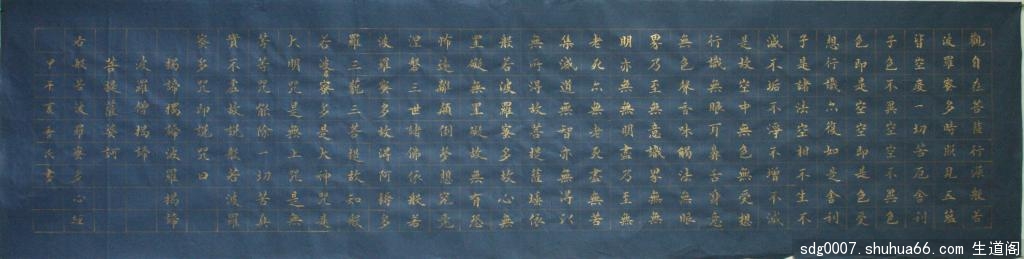 觀自在菩薩行深般若
波羅蜜多時照見五蘊
皆空度一切苦厄舍利
子色不異空空不異色
色即是空空即是色受
想行識亦復如是舍利
子是諸法空相不生不
滅不垢不淨不增不減
是故空中無色無受想
行識無眼耳鼻舌身意
無色聲香味觸法無眼
界乃至無意識界無無
明亦無無明盡乃至無
老死亦無老死盡無苦
集滅道無智亦無得以
無所得故菩提薩埵依
般若波羅蜜多故心無
罣礙無罣礙故無有恐
怖遠離顛倒夢想究竟
涅槃三世諸佛依般若
波羅蜜多故得阿耨多
羅三藐三菩提故知般
若波羅蜜多是大神咒是
大明咒是無上咒是無
等等咒能除一切苦真
實不虛故說般若波羅
蜜多咒即說咒曰
揭諦揭諦波羅揭諦
波羅僧揭諦
菩提薩婆訶
右般若波羅蜜多心經
甲午夏氏書
sdg0007.shuhua66.com 生道阁